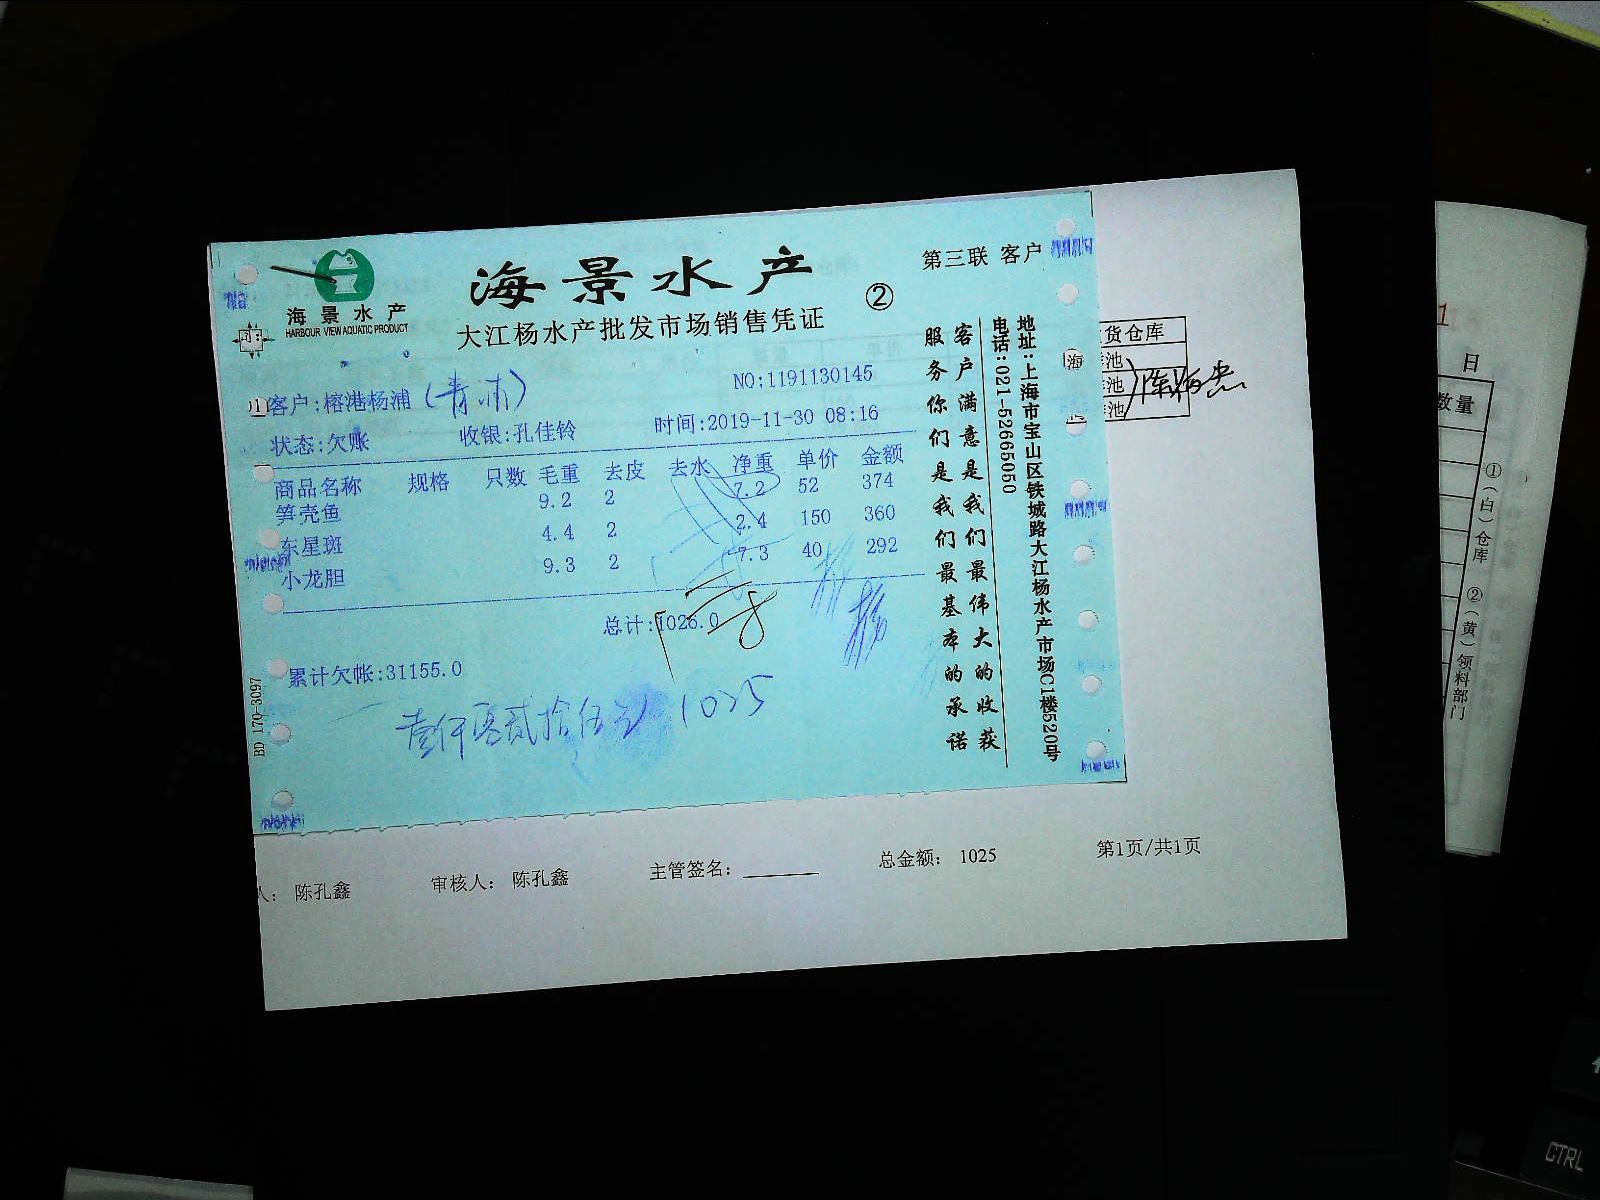 海景水产
HARBOUR VIEW AQUATIC PRODUCT
海景水产
大江杨水产批发市场销售凭证
②
第三联 客户
NO:1191130145
客户:榕港杨浦(青浦)
状态:欠账 收银:孔佳铃 时间:2019-11-30 08:16
商品名称 规格 只数 毛重 去皮 去水 净重 单价 金额
笋壳鱼 9.2 2 7.2 52 374
东星斑 4.4 2 2.4 150 360
小龙胆 9.3 2 7.3 40 292
总计:1026.0
累计欠帐:31155.0
壹仟零贰拾伍元 1025
BD 170-3097
客户满意是我们最伟大的收获
服务你们是我们最基本的承诺
地址:上海市宝山区铁城路大江杨水产市场C1楼520号
电话:021-52665050
货仓库
池
池
池
海
人: 陈孔鑫 审核人: 陈孔鑫 主管签名: 总金额: 1025 第1页/共1页
1
日
数量
①(白)仓库 ②(黄)领料部门
CTRL